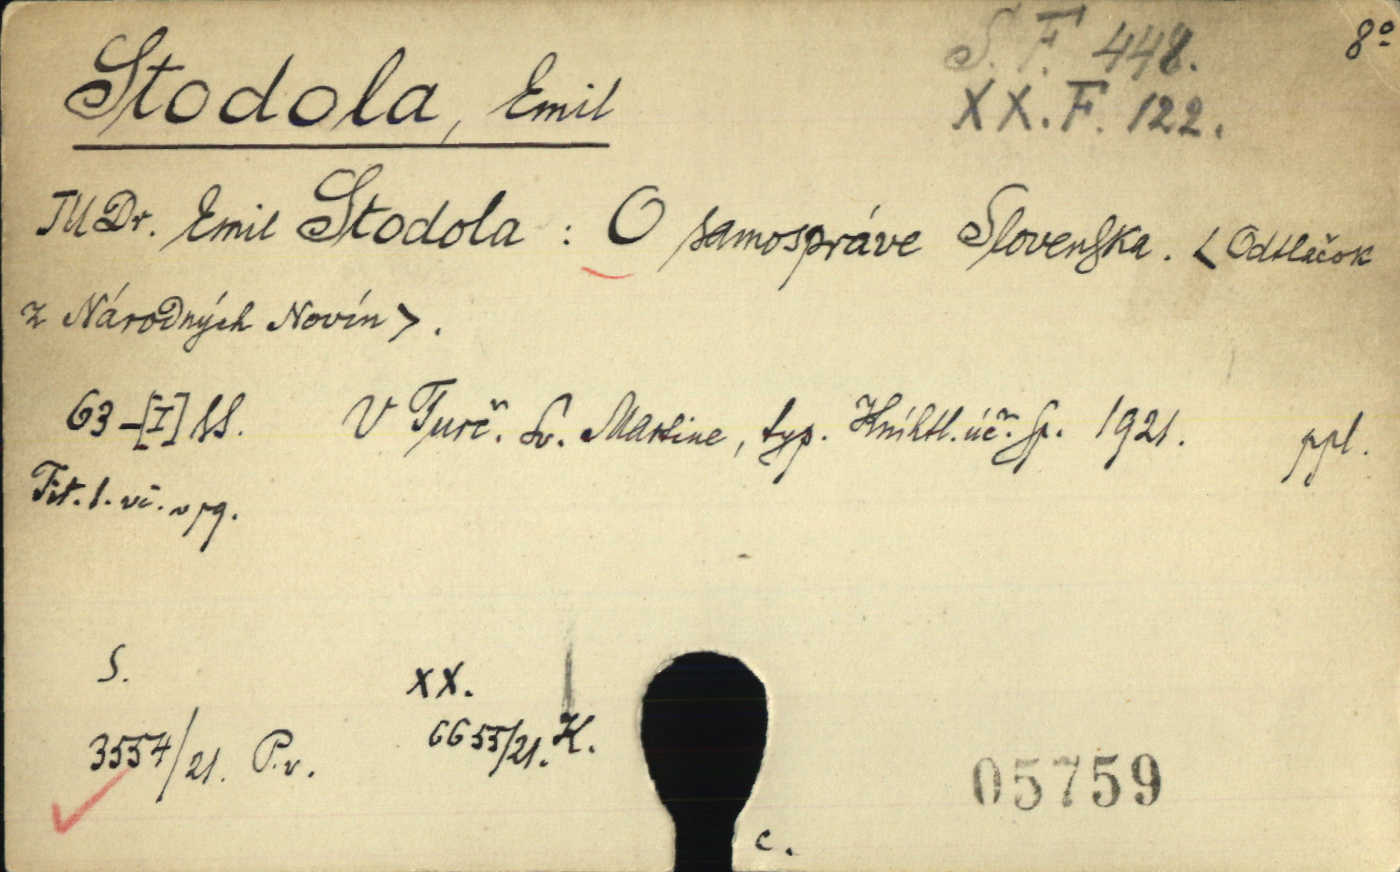 S. F. 448. 8º
Stodola, Emil
XX. F. 122.
JUDr. Emil Stodola : O samospráve Slovenska. < Odtlačok
z Národných Novín > .
63-[I] ss. V Turč. Sv. Martine, typ. Kníhtl. úč. sp. 1921. ppl.
Tit. l. vč. v pg.
S. XX.
3554/21. P.v. 6655/21. K.
05759
c.